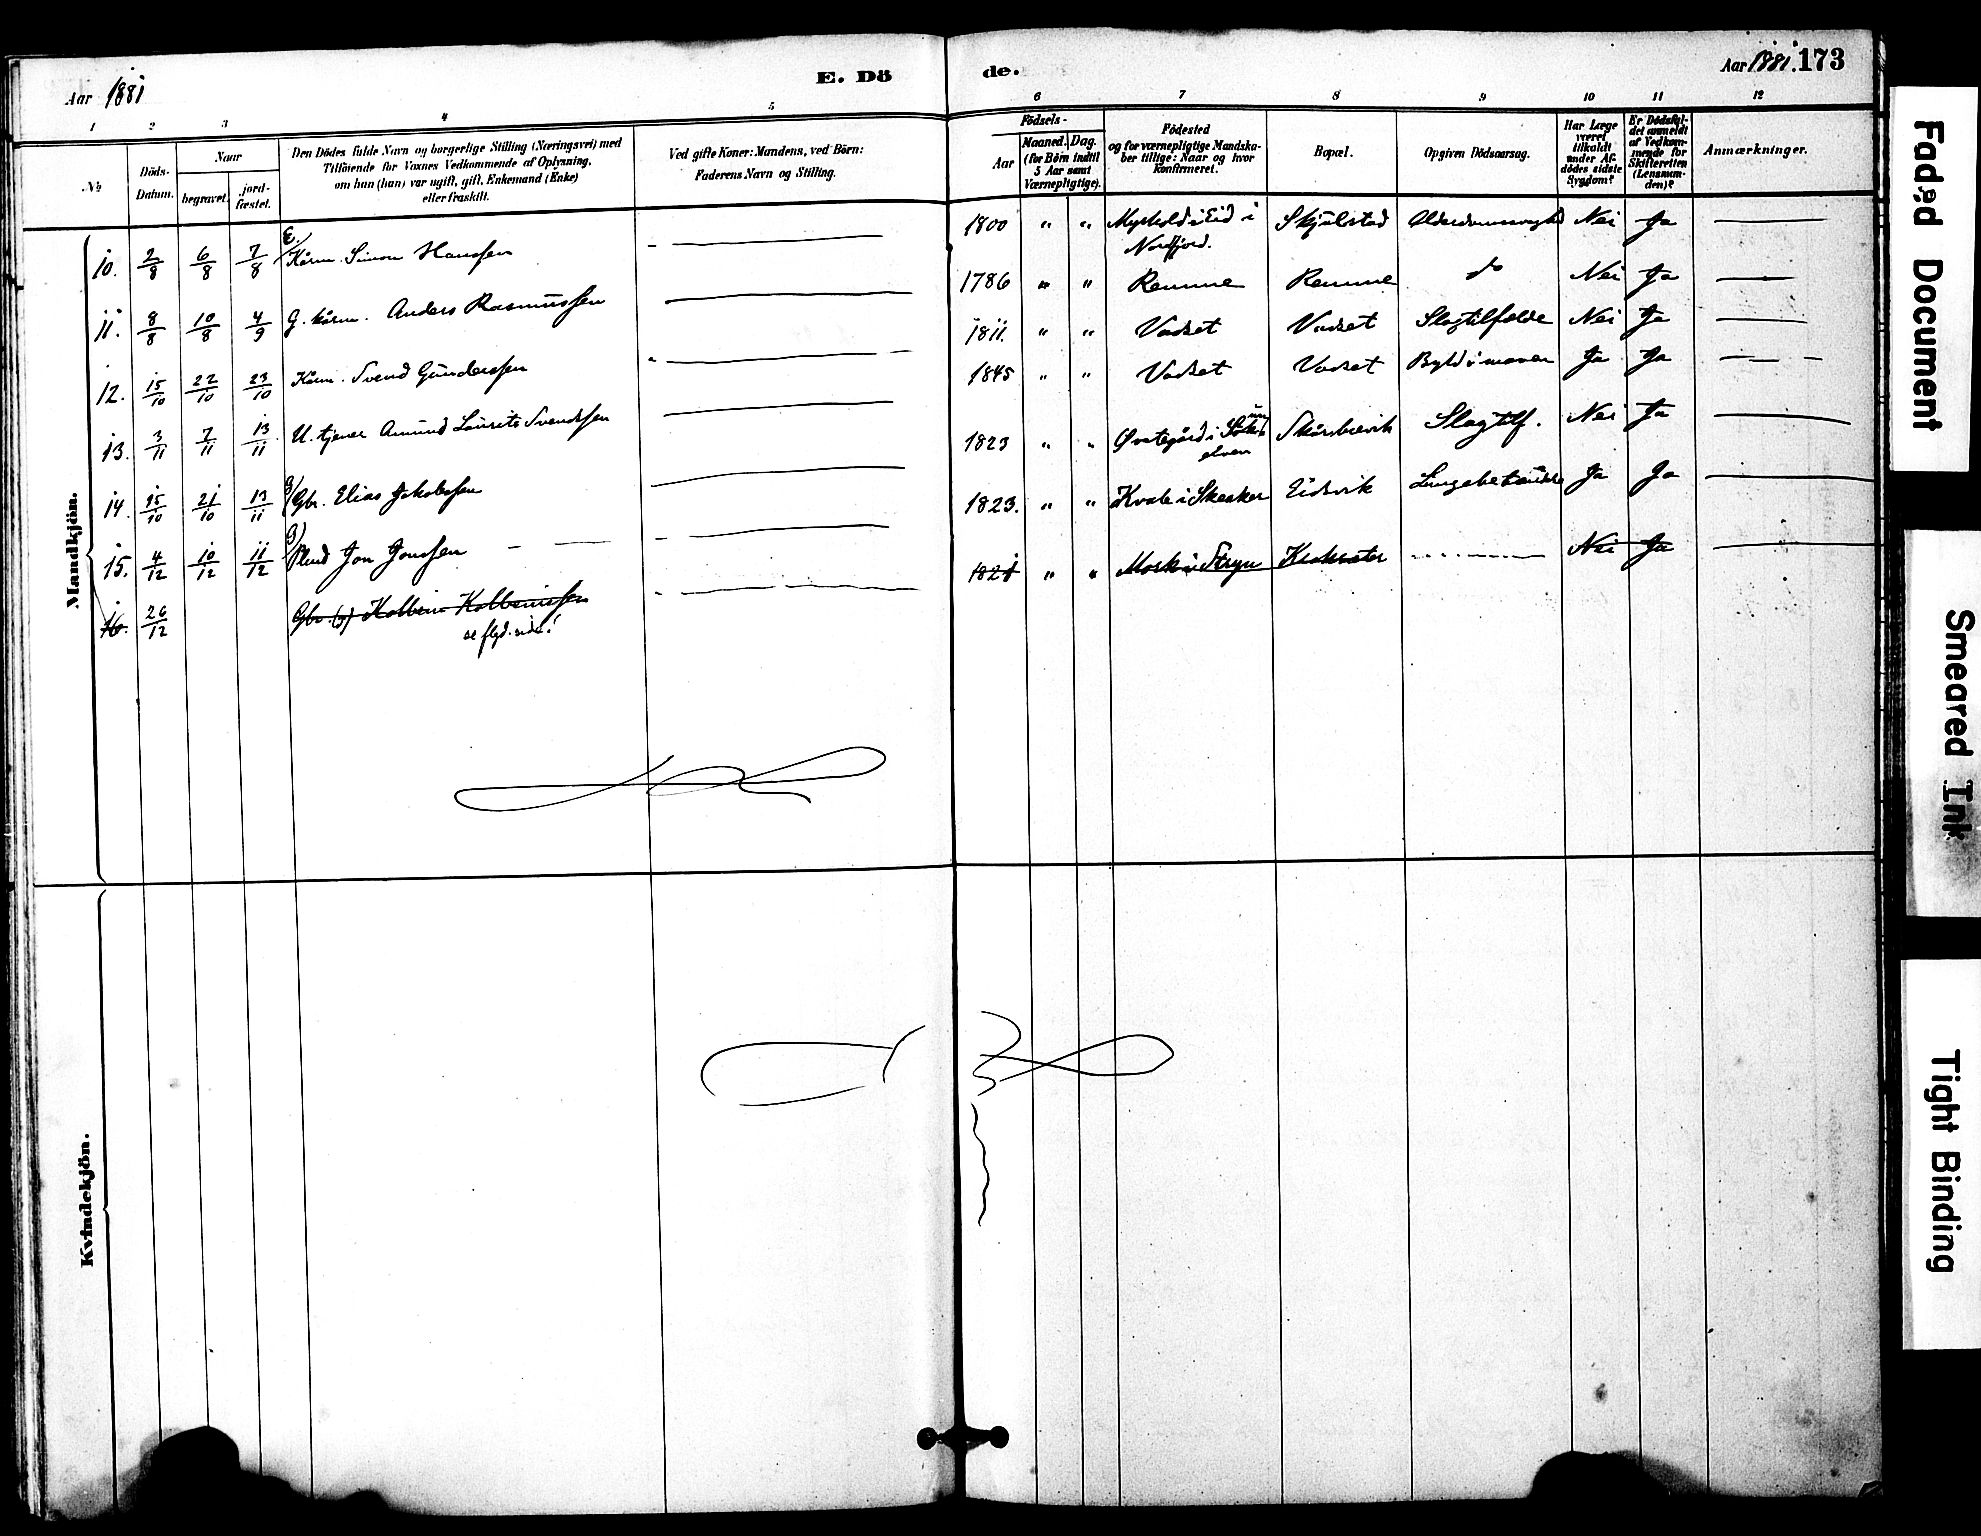 Aar 1881
E. Dö
de.
Aar 1881. 173
1 2 3 4 5 6 7 8 9 10 11 12
No
Döds-Datum.
Naar
begravet.
jord-fæstet.
Den Dödes fulde Navn og borgerlige Stilling (Næringsvei) med
Tilföiende for Voxnes Vedkommende af Oplysning,
om hun (han) var ugift, gift, Enkemand (Enke)
eller fraskilt.
Ved gifte Koner: Mandens, ved Börn:
Faderens Navn og Stilling.
Födsels-
Aar
Maaned. Dag.
(for Börn indtil
5 Aar samt
Værnepligtige).
Födested
og for værnepligtige Mandska-
ber tillige: Naar og hvor
konfirmeret.
Bopæl.
Opgiven Dödsaarsag.
Har Læge
været
tilkaldt
under Af-
dödes sidste
Sygdom?
Er Dödsfal-
det anmeldt
af Vedkom-
mende for
Skifteretten
(Lensman-
den)?
Anmærkninger.
Mandkjön.
10. 2/8 6/8 7/8 E. Kårm. Simon Hanssen 1800 " " i Eid i Nordfjord. Skjelstad Nei Ja
11. 8/8 10/8 4/9 G. kårm. Anders Rasmussen 1786 " " Remme Remme do Nei Ja
12. 15/10 22/10 23/10 Kårm. Svend Gunderssen 1811. " " Vadset Vadset Slagtilfælde Nei Ja
13. 3/11 7/11 13/11 U. tjener Amund Laurits Svendssen 1845 " " Vadset Vadset Byld i maven Ja Ja
14. 15/10 21/10 13/11 g) Gbr. Elias Jakobssen 1823 " " Slagtilf. Nei Ja
15. 4/12 10/12 11/12 g) Jon Jonssen 1823. " " Eidsvik Ja Ja
16. 26/12 Gbr. (g) Kolbein Kolbeinssen 1821 " " i Stryn Nei Ja
se flgd. side!
Kvindekjön.
Faded Document
Smeared Ink
Tight Binding